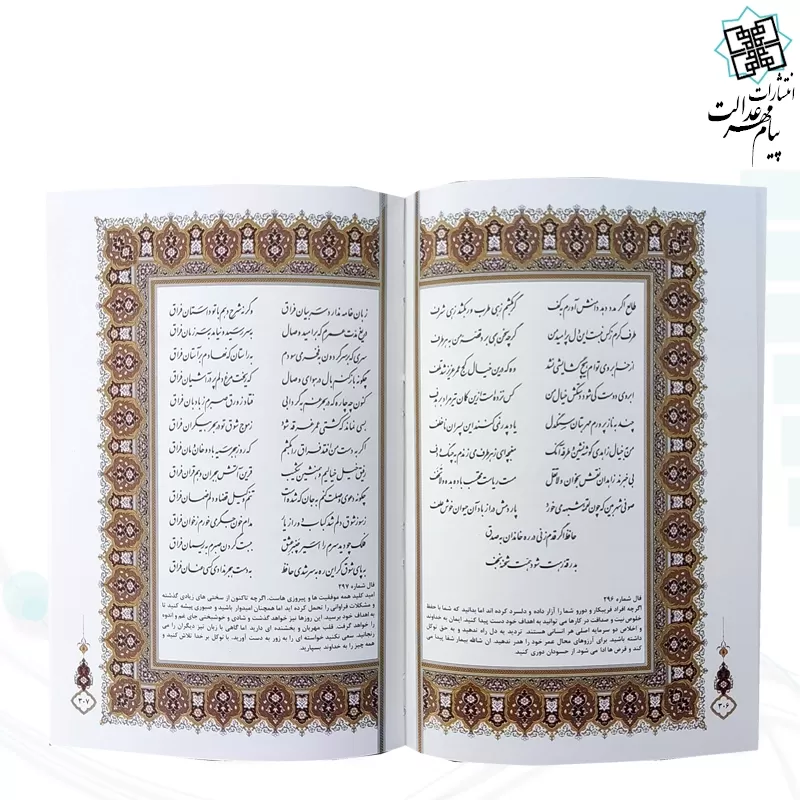 انتشارات
پیام مهر عدالت
طالع اگر مدد دهد دامنش آورم به کف
گر بکشم زهی طرب ور بکشد زهی شرف
طرف کرم ز کس نبست این دل پر امید من
گرچه سخن همی برد قصه من به هر طرف
از خم ابروی توام هیچ گشایشی نشد
وه که در این خیال کج عمر عزیز شد تلف
ابروی دوست کی شود دستکش خیال من
کس نزده‌ست از این کمان تیر مراد بر هدف
چند به ناز پرورم مهر بتان سنگدل
یاد پدر نمی‌کنند این پسران ناخلف
من به خیال زاهدی گوشه‌نشین و طرفه آنک
مغبچه‌ای ز هر طرف می‌زندم به چنگ و دف
بی خبرند زاهدان نقش بخوان و لا تقل
مست ریاست محتسب باده بده و لا تخف
صوفی شهر بین که چون لقمه شبهه می‌خورد
پاردمش دراز باد آن حیوان خوش علف
حافظ اگر قدم زنی در ره خاندان به صدق
بدرقه رهت شود همت شحنه نجف
فال شماره ۲۹۶
اگرچه افراد فریبکار و دورو شما را آزار داده و دلسرد کرده اند اما بدانید که شما با حفظ
خلوص نیت و صداقت در کارها می توانید به اهداف خود دست پیدا کنید. ایمان به خداوند
و اخلاص دو سرمایه اصلی هر انسانی هستند. تردید به دل راه ندهید و به حق توکل
داشته باشید. برای آرزوهای محال عمر خود را هدر ندهید. ان شالله بیمار شفا پیدا می
کند و قرض ها ادا می شود. از حسودان دوری کنید.
۳۰۶
زبان خامه ندارد سر بیان فراق
وگرنه شرح دهم با تو داستان فراق
دریغ مدت عمرم که بر امید وصال
به سر رسید و نیامد به سر زمان فراق
سری که بر سر گردون به فخر می‌سودم
به راستان که نهادم بر آستان فراق
چگونه باز کنم بال در هوای وصال
که ریخت مرغ دلم پر در آشیان فراق
کنون چه چاره که در بحر غم به گردابی
فتاد زورق صبرم ز بادبان فراق
بسی نماند که کشتی عمر غرقه شود
ز موج شوق تو در بحر بیکران فراق
اگر به دست من افتد فراق را بکشم
که روز هجر سیه باد و خان و مان فراق
رفیق خیل خیالیم و همنشین شکیب
قرین آتش هجران و هم قران فراق
چگونه دعوی وصلت کنم به جان که شده‌است
تنم وکیل قضا و دلم ضمان فراق
ز سوز شوق دلم شد کباب دور از یار
مدام خون جگر می‌خورم ز خوان فراق
فلک چو دید سرم را اسیر چنبر عشق
ببست گردن صبرم به ریسمان فراق
به پای شوق گر این ره به سر شدی حافظ
به دست هجر ندادی کسی عنان فراق
فال شماره ۲۹۷
امید کلید همه موفقیت ها و پیروزی هاست. اگرچه تاکنون از سختی های زیادی گذشته
و مشکلات فراوانی را تحمل کرده اید اما همچنان امیدوار باشید و صبوری پیشه کنید تا
به اهداف خود برسید. این روزها نیز خواهد گذشت و شادی و خوشبختی جای غم و اندوه
را خواهد گرفت. قلب مهربان و بخشنده ای دارید. اما گاهی با زبان نیز دیگران را می
رنجانید. سعی نکنید خواسته ای را به زور به دست آورید. با توکل بر خدا تلاش کنید و
همه چیز را به خداوند بسپارید.
۳۰۷